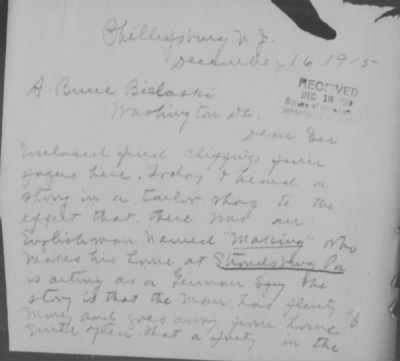 Phillipsburg N.J.
December 16 1915
A Bruce Bielaski
RECEIVED
DEC 18 1915
Bureau of
DEPARTMENT OF
Washington DC.
Dear Sir
Enclosed find clippings from
papers here. Today I heard a
story in a tailor shop to the
effect that there was an
Englishman named "Masking" who
makes his home at Stroudsburg Pa
is acting as a German Spy the
story is that the man has plenty of
money and goes away from home
quite often that a party in the